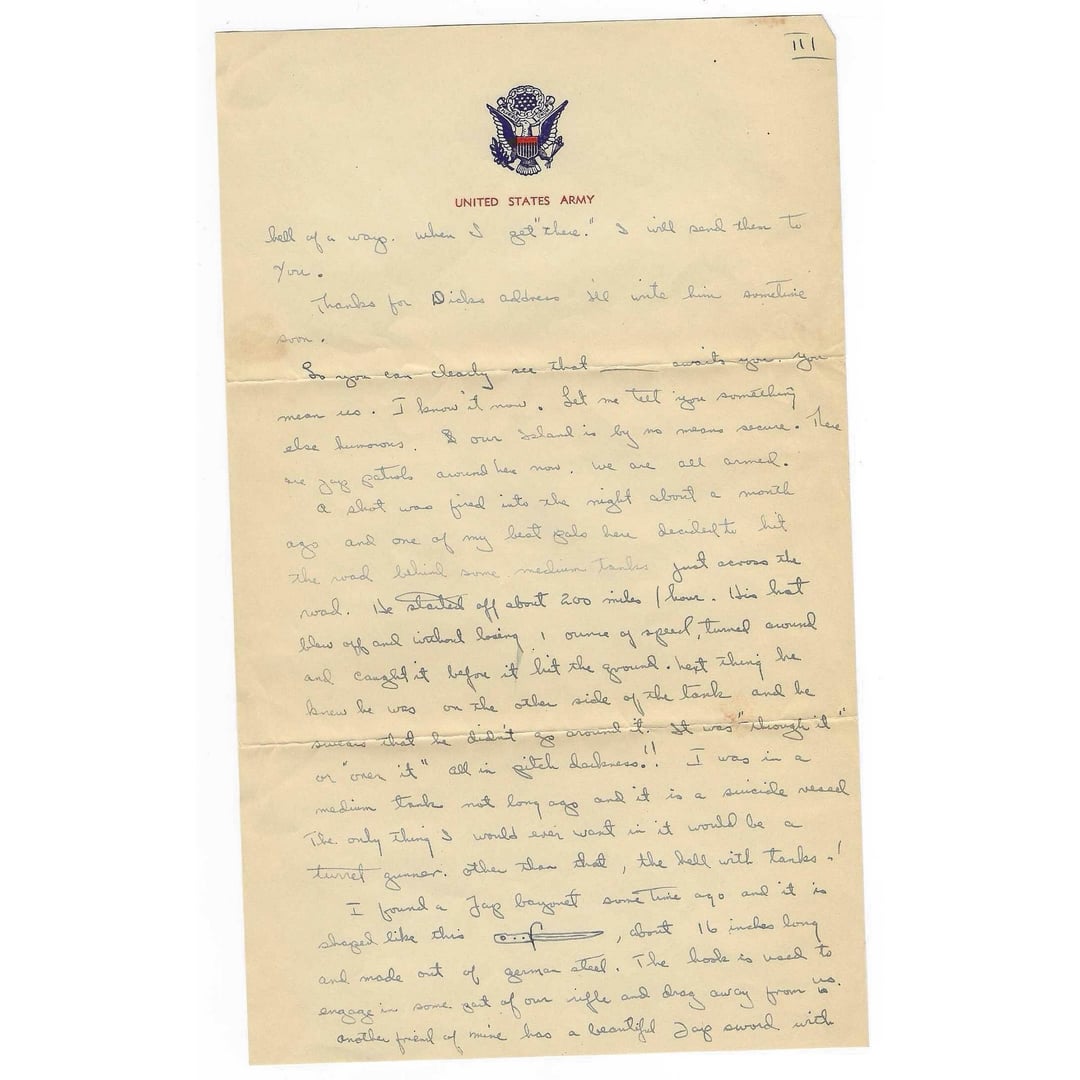 III
UNITED STATES ARMY
hell of a ways. when I get "there." I will send them to
you.
Thanks for Dicks address I'll write him sometime
soon.
So you can clearly see that ______ awaits you. you
mean us. I know it now. Let me tell you something
else humorous. our Island is by no means secure. There
are Jap patrols around here now. we are all armed.
A shot was fired into the night about a month
ago and one of my best pals here decided to hit
the road behind some medium tanks just across the
road. He started off about 200 miles / hour. His hat
blew off and without losing 1 ounce of speed, turned around
and caught it before it hit the ground. next thing he
knew he was on the other side of the tank and he
swears that he didn't go around it. It was "through it"
or "over it" all in pitch darkness!! I was in a
medium tank not long ago and it is a suicide vessel
The only thing I would ever want in it would be a
turret gunner. other than that, the hell with tanks!
I found a Jap bayonet sometime ago and it is
shaped like this , about 16 inches long
and made out of german steel. The hook is used to
engage in some part of our rifle and drag away from us.
another friend of mine has a beautiful Jap sword with